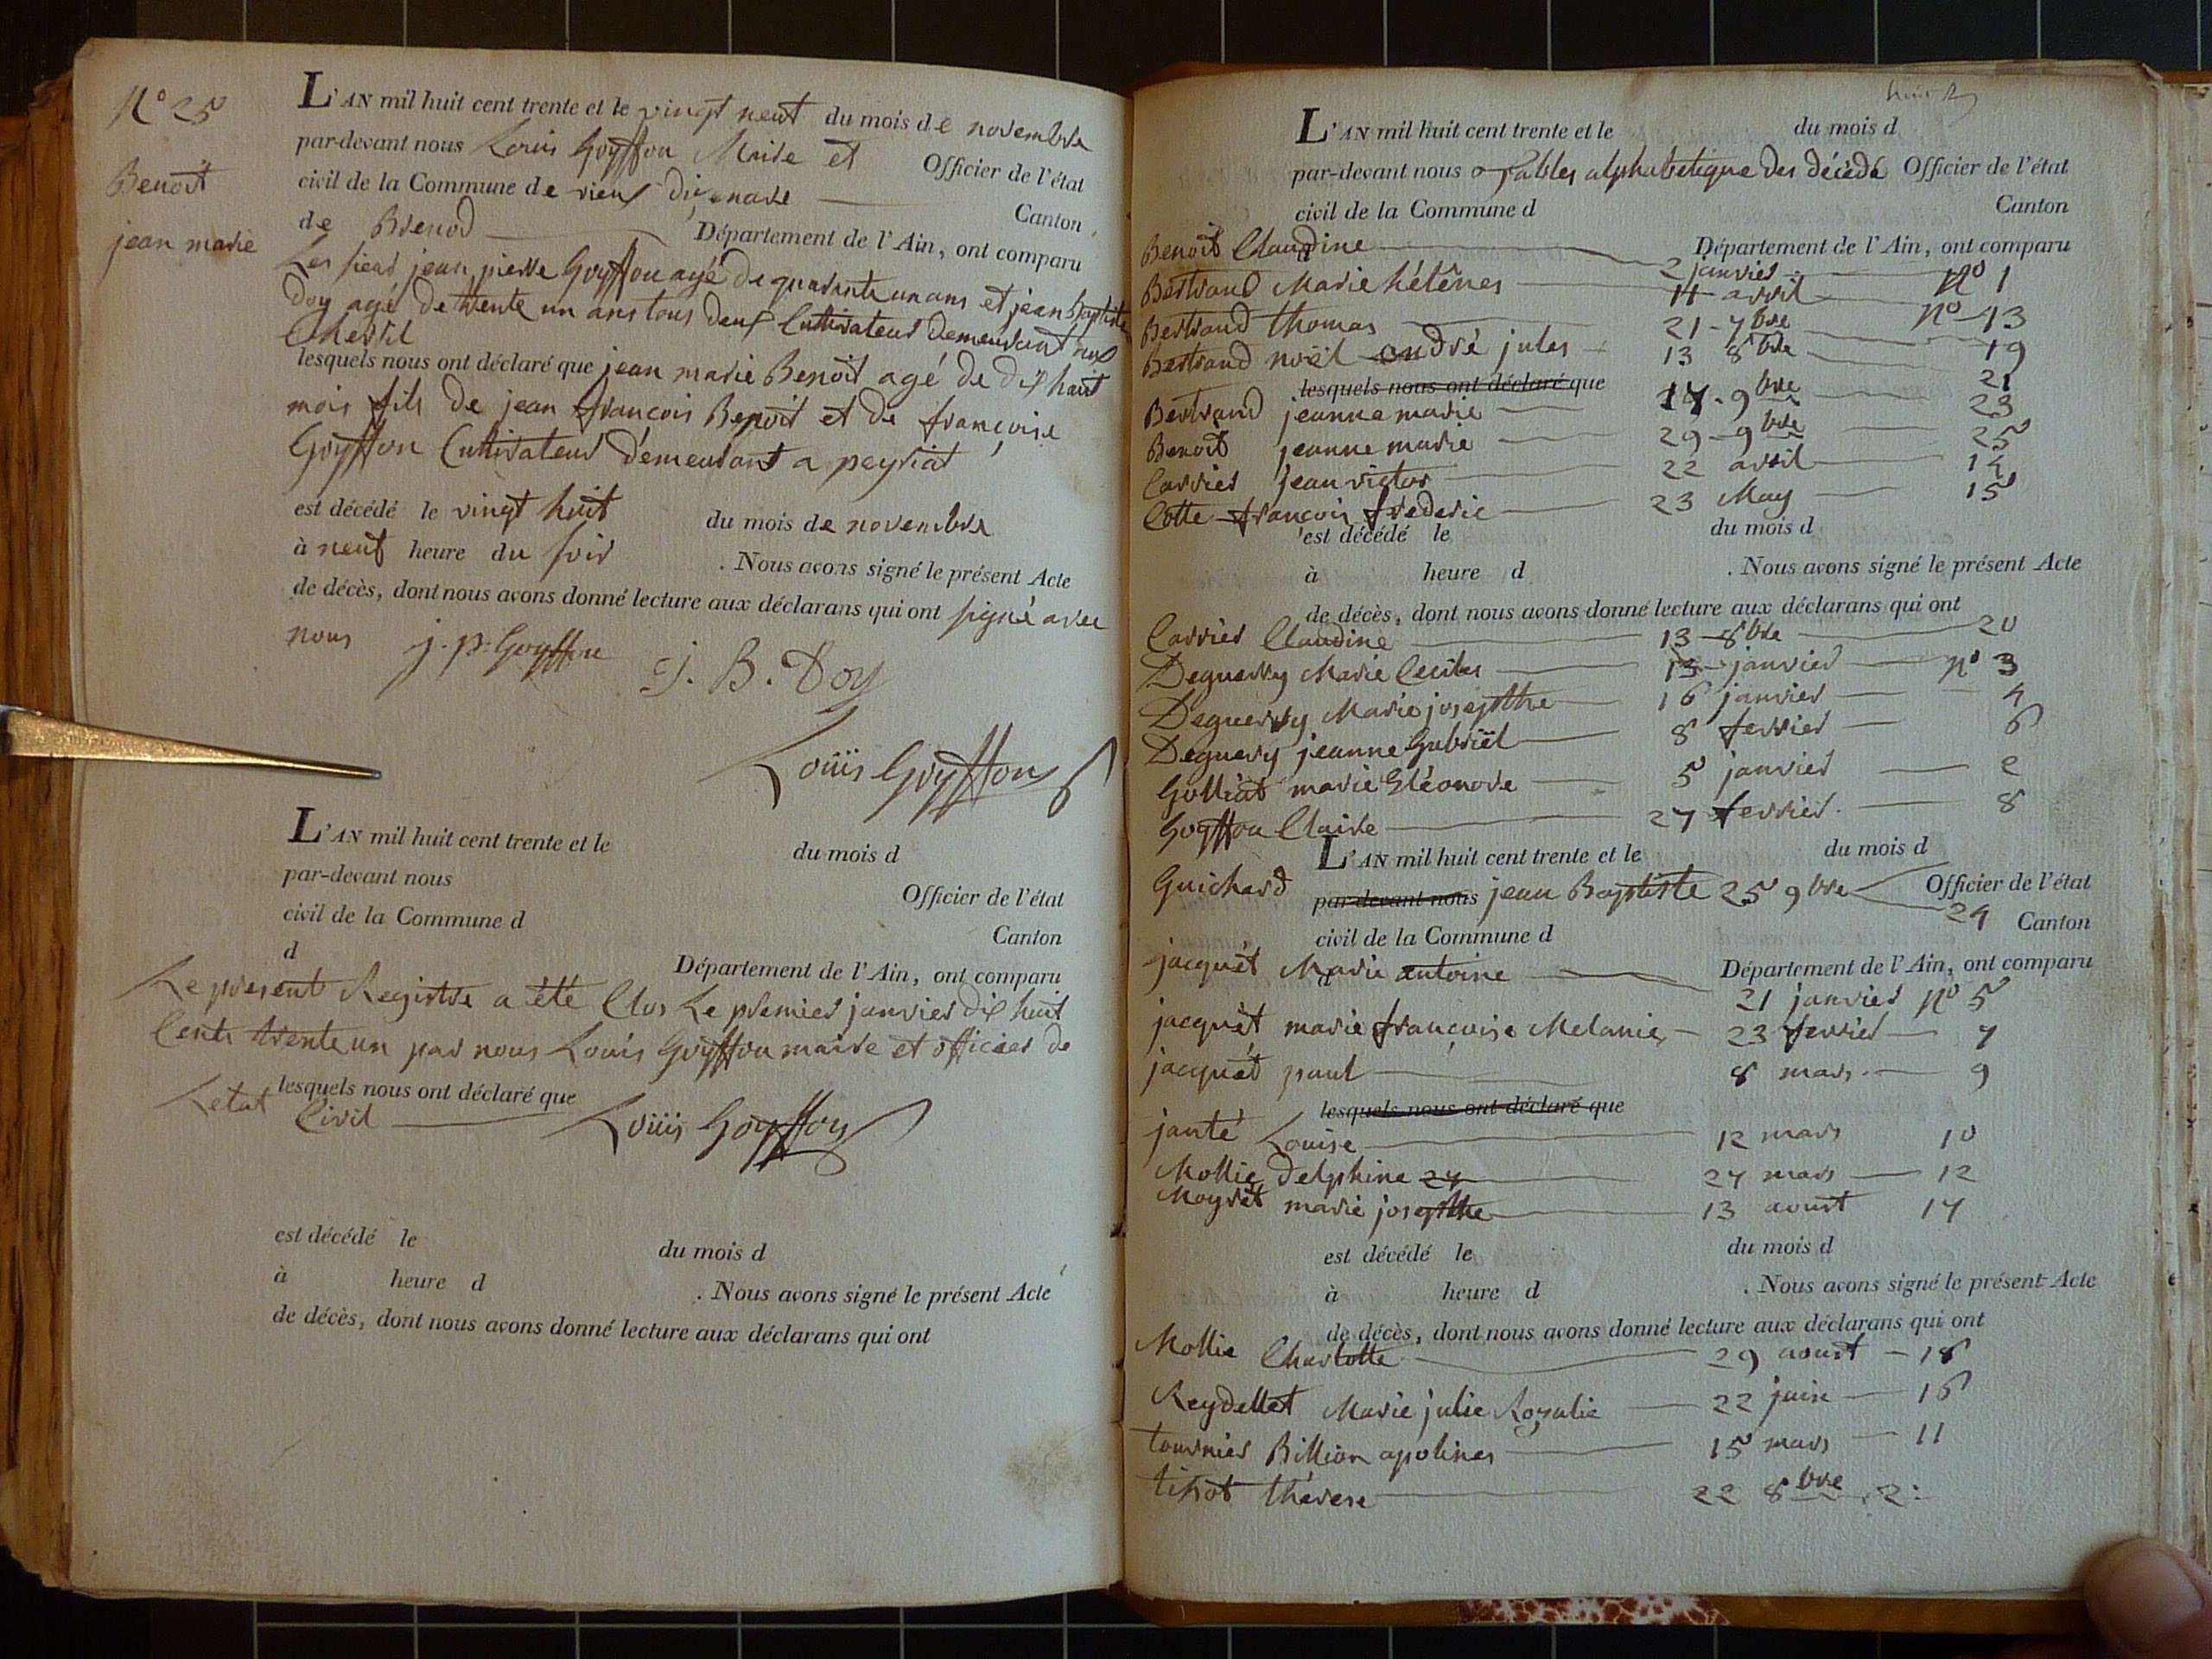 N° 25
Benoit
jean marie
L'AN mil huit cent trente et le vingt neuf du mois de novembre
par-devant nous Louis Goyffon Maire et Officier de l'état
civil de la Commune de vieux dizenave Canton
de Brenod Département de l'Ain, ont comparu
Les sieur jean pierre Goyffon agé de quarante un ans et jean Baptiste
Doy agé de trente un ans tous deux Cultivateur demeurant aux
lesquels nous ont déclaré que jean marie Benoit agé de dix huit
mois fils de jean françois Benoit et de françoise
Goyffon Cultivateur demeurant a peyriat
est décédé le vingt huit du mois de novembre
à neuf heure du soir . Nous avons signé le présent Acte
de décès, dont nous avons donné lecture aux déclarans qui ont signé avec
nous j. p. Goyffon J. B. Doy
Louis Goyffon
L'AN mil huit cent trente et le du mois d
par-devant nous Officier de l'état
civil de la Commune d Canton
d Département de l'Ain, ont comparu
Le present Registre a été Clos Le premier janvier dix huit
Cents trente un par nous Louis Goyffon maire et officier de
lesquels nous ont déclaré que
Letat Civil Louis Goyffon
est décédé le du mois d
à heure d . Nous avons signé le présent Acte
de décès, dont nous avons donné lecture aux déclarans qui ont
L'AN mil huit cent trente et le du mois d
par-devant nous Tables alphabetique des décédé Officier de l'état
civil de la Commune d Canton
Département de l'Ain, ont comparu
Benoit Claudine 2 janvier n° 1
Bertrand Marie hélênes 11 avril n° 13
Bertrand thomas 21 7bre 19
Bertrand noël andré jules 13 8bre 21
lesquels nous ont déclaré que
Bertrand jeanne marie 14 9bre 23
Benoit jeanne marie 29 9bre 25
Carrier jean victor 22 avril 14
Cotte françois fréderic 23 May 15
est décédé le du mois d
à heure d . Nous avons signé le présent Acte
de décès, dont nous avons donné lecture aux déclarans qui ont
Carrier Claudine 13 8bre 20
Deguerry Marie Ceciles 13 janvier n° 3
Deguerry Marie josepthe 16 janvier 4
Deguery jeanne Gabriël 8 fevrier 6
Golliat marie Eléonore 5 janvier 2
Goyffon Claire 27 fevrier 8
L'AN mil huit cent trente et le du mois d
Guichard par-devant nous jean Baptiste 25 9bre Officier de l'état
24
civil de la Commune d Canton
d Département de l'Ain, ont comparu
jacquet Marie antoine 21 janvier n° 5
jacquet marie françoise Melanie 23 fevrier 7
jacquet paul 8 mars 9
lesquels nous ont déclaré que
janté Louise 12 mars 10
Mollie delphine 27 27 mars 12
Moyret marie josepthe 13 aoust 17
est décédé le du mois d
à heure d . Nous avons signé le présent Acte
de décès, dont nous avons donné lecture aux déclarans qui ont
Mollie Charlotte 29 aoust 18
Reydellet Marie julie Rozalie 22 juin 16
tournier Billion apolines 15 mars 11
tissot thérese 22 8bre